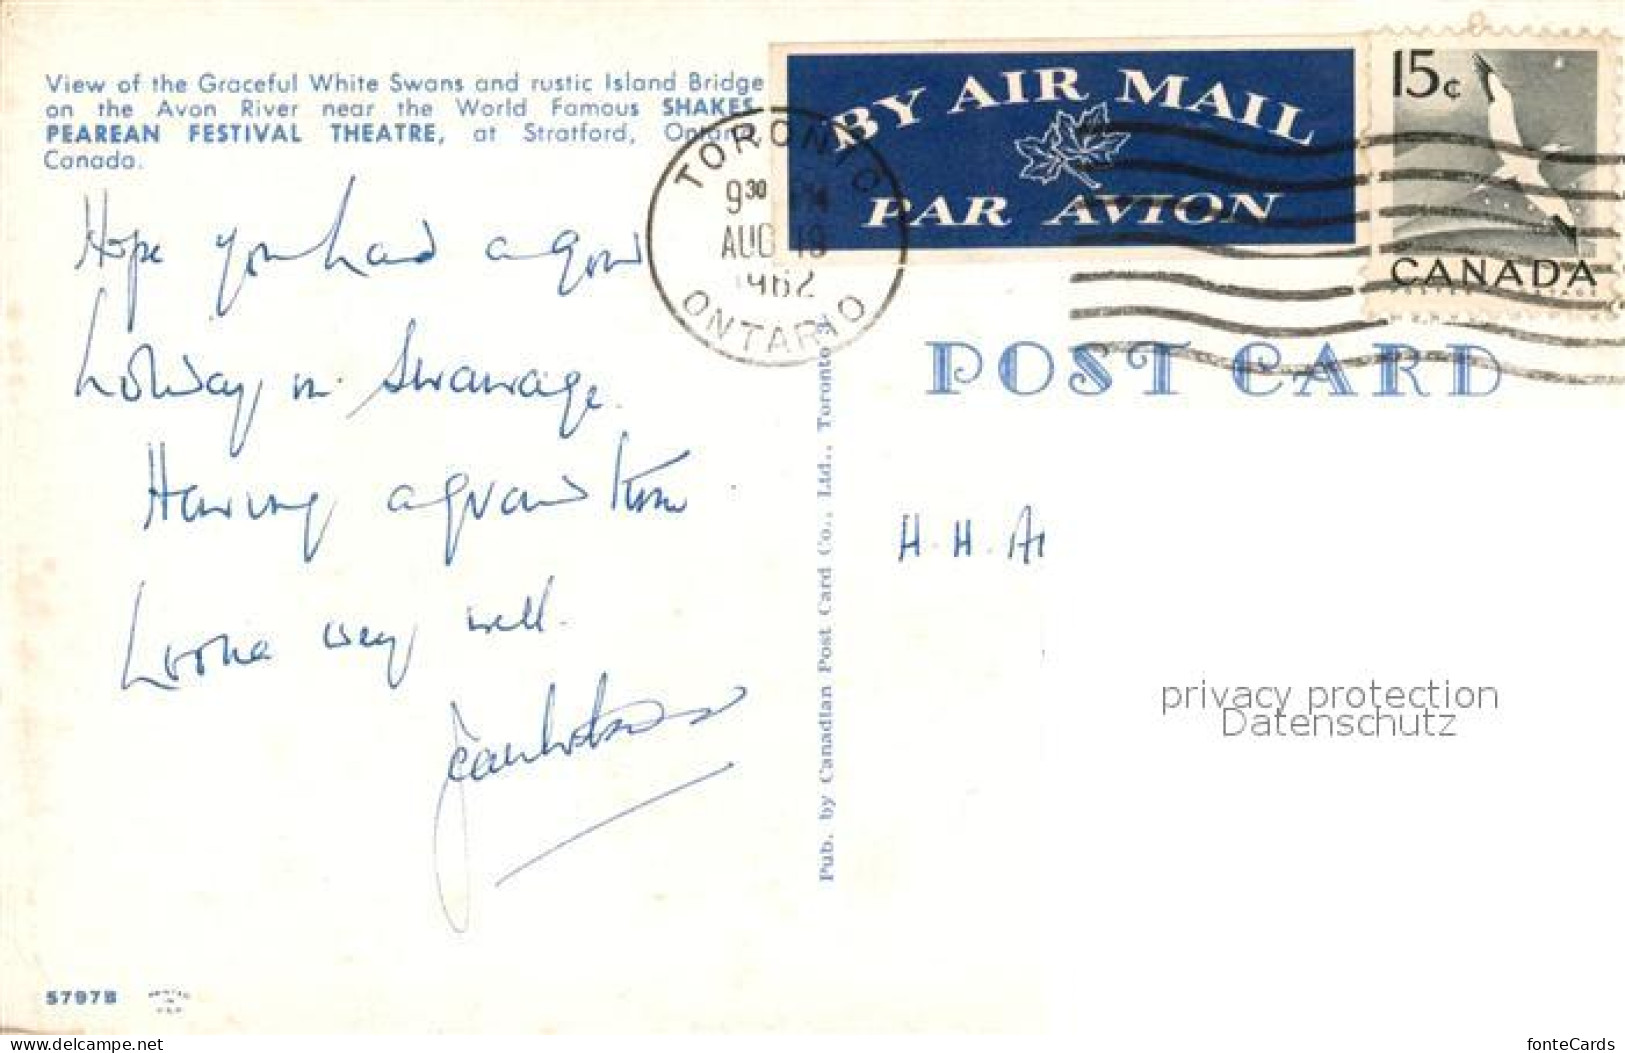 View of the Graceful White Swans and rustic Island Bridge
on the Avon River near the World Famous SHAKES
PEAREAN FESTIVAL THEATRE, at Stratford, Ontario,
Canada.
Hope you had a good
holiday in Swanage.
Having a grand time
Lorna very well.
BY AIR MAIL
PAR AVION
TORONTO
9 30 PM
AUG
1962
ONTARIO
15c
CANADA
POST CARD
Pub. by Canadian Post Card Co., Ltd., Toronto
H. H. A
privacy protection
Datenschutz
57978
delcampe.net
fonteCards